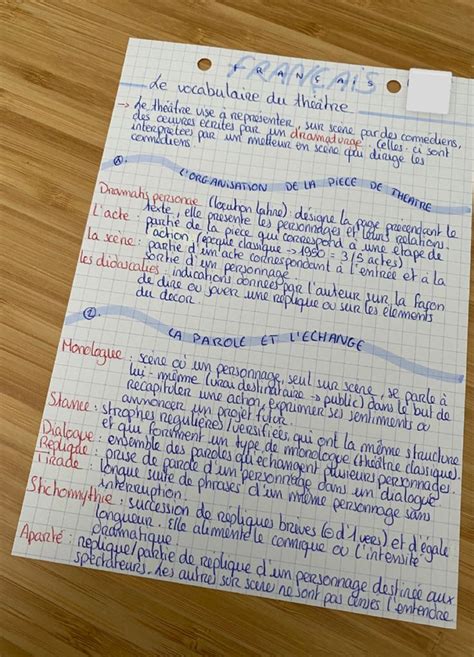 FRANÇAIS
Le vocabulaire du théâtre
→ Le théâtre vise à représenter, sur scène par des comédiens,
des œuvres écrites par un dramaturge. Celles-ci sont
interprétées par un metteur en scène qui dirige les
comédiens.
①. L'ORGANISATION DE LA PIECE DE THEATRE
Dramatis personae (locution latine) : désigne la page précédant le
texte, elle présente les personnages et leurs relations.
L'acte : partie de la pièce qui correspond à une étape de
l'action (époque classique → 1950 = 3/5 actes)
la scène : partie d'un acte correspondant à l'entrée et à la
sortie d'un personnage.
les didascalies : indications données par l'auteur sur la façon
de dire ou jouer une réplique ou sur les éléments
du décor.
②. LA PAROLE ET L'ECHANGE
Monologue : scène où un personnage, seul sur scène, se parle à
lui-même (vrai destinataire → public) dans le but de
récapituler une action, exprimer ses sentiments ou
annoncer un projet futur.
Stance : strophes régulières/versifiées, qui ont la même structure
et qui forment un type de monologue (théâtre classique).
Dialogue : ensemble des paroles qu'échangent plusieurs personnages.
Réplique : prise de parole d'un personnage dans un dialogue.
Tirade : longue suite de phrases d'un même personnage sans
interruption.
Stichomythie : succession de répliques brèves (⊖ d'1 vers) et d'égale
longueur. Elle alimente le comique ou l'intensité
dramatique.
Aparté : réplique/partie de réplique d'un personnage destinée aux
spectateurs. Les autres sur scène ne sont pas censés l'entendre